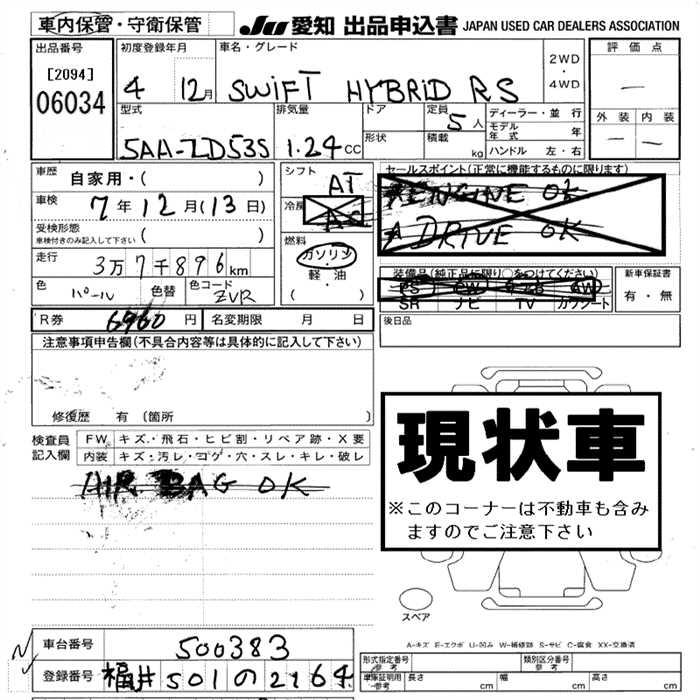 車内保管・守衛保管
JU 愛知 出品申込書 JAPAN USED CAR DEALERS ASSOCIATION
出品番号
[2094]
06034
初度登録年月
4 12月
車名・グレード
SWiFT HYBRiD RS
2WD
・
4WD
評価点
—
外装 内装
— —
型式
5AA-ZD53S
排気量
1.24 CC
ドア
形状
定員
5人
積載
kg
ディーラー・並行
モデル年式 年
ハンドル 左・右
車歴
自家用・( )
車検
7年12月(13日)
受検形態
車検付きのみ記入して下さい ( )
走行
3万7千896km
色
パール
色替
色コード
ZVR
シフト
AT
冷房
AC
燃料
ガソリン
・
軽・油
( )
セールスポイント(正常に機能するものに限ります)
ENGINE OK
A DRIVE OK
装備品(純正品に限り○をつけてください)
PS PW AW
SR ナビ TV カワシート
新車保証書
有・無
R券 6960円
名変期限 月 日
後日品
注意事項申告欄(不具合内容等は具体的に記入して下さい)
修復歴 有 (箇所 )
検査員
記入欄
FW キズ・飛石・ヒビ割・リペア跡・X要
内装 キズ・汚レ・コゲ・穴・スレ・キレ・破レ
AIR BAG OK
現状車
※このコーナーは不動車も含み
ますのでご注意下さい
スペア
A-キズ E-エクボ U-凹み W-補修跡 S-サビ C-腐食 XX-交換済
車台番号
500383
登録番号
福井501の2164
形式指定番号
参考
類別区分番号
参考
車庫証明用
参考
長さ cm
幅 cm
高さ cm